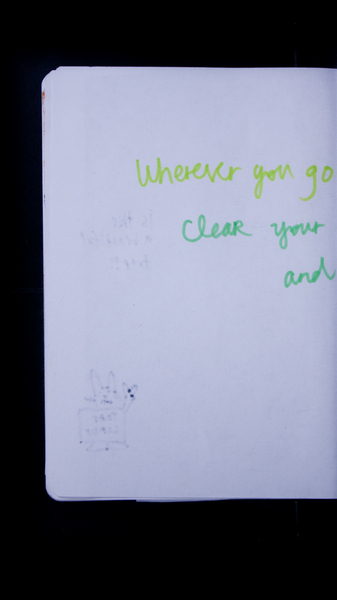 Wherever you go
Clear your
and